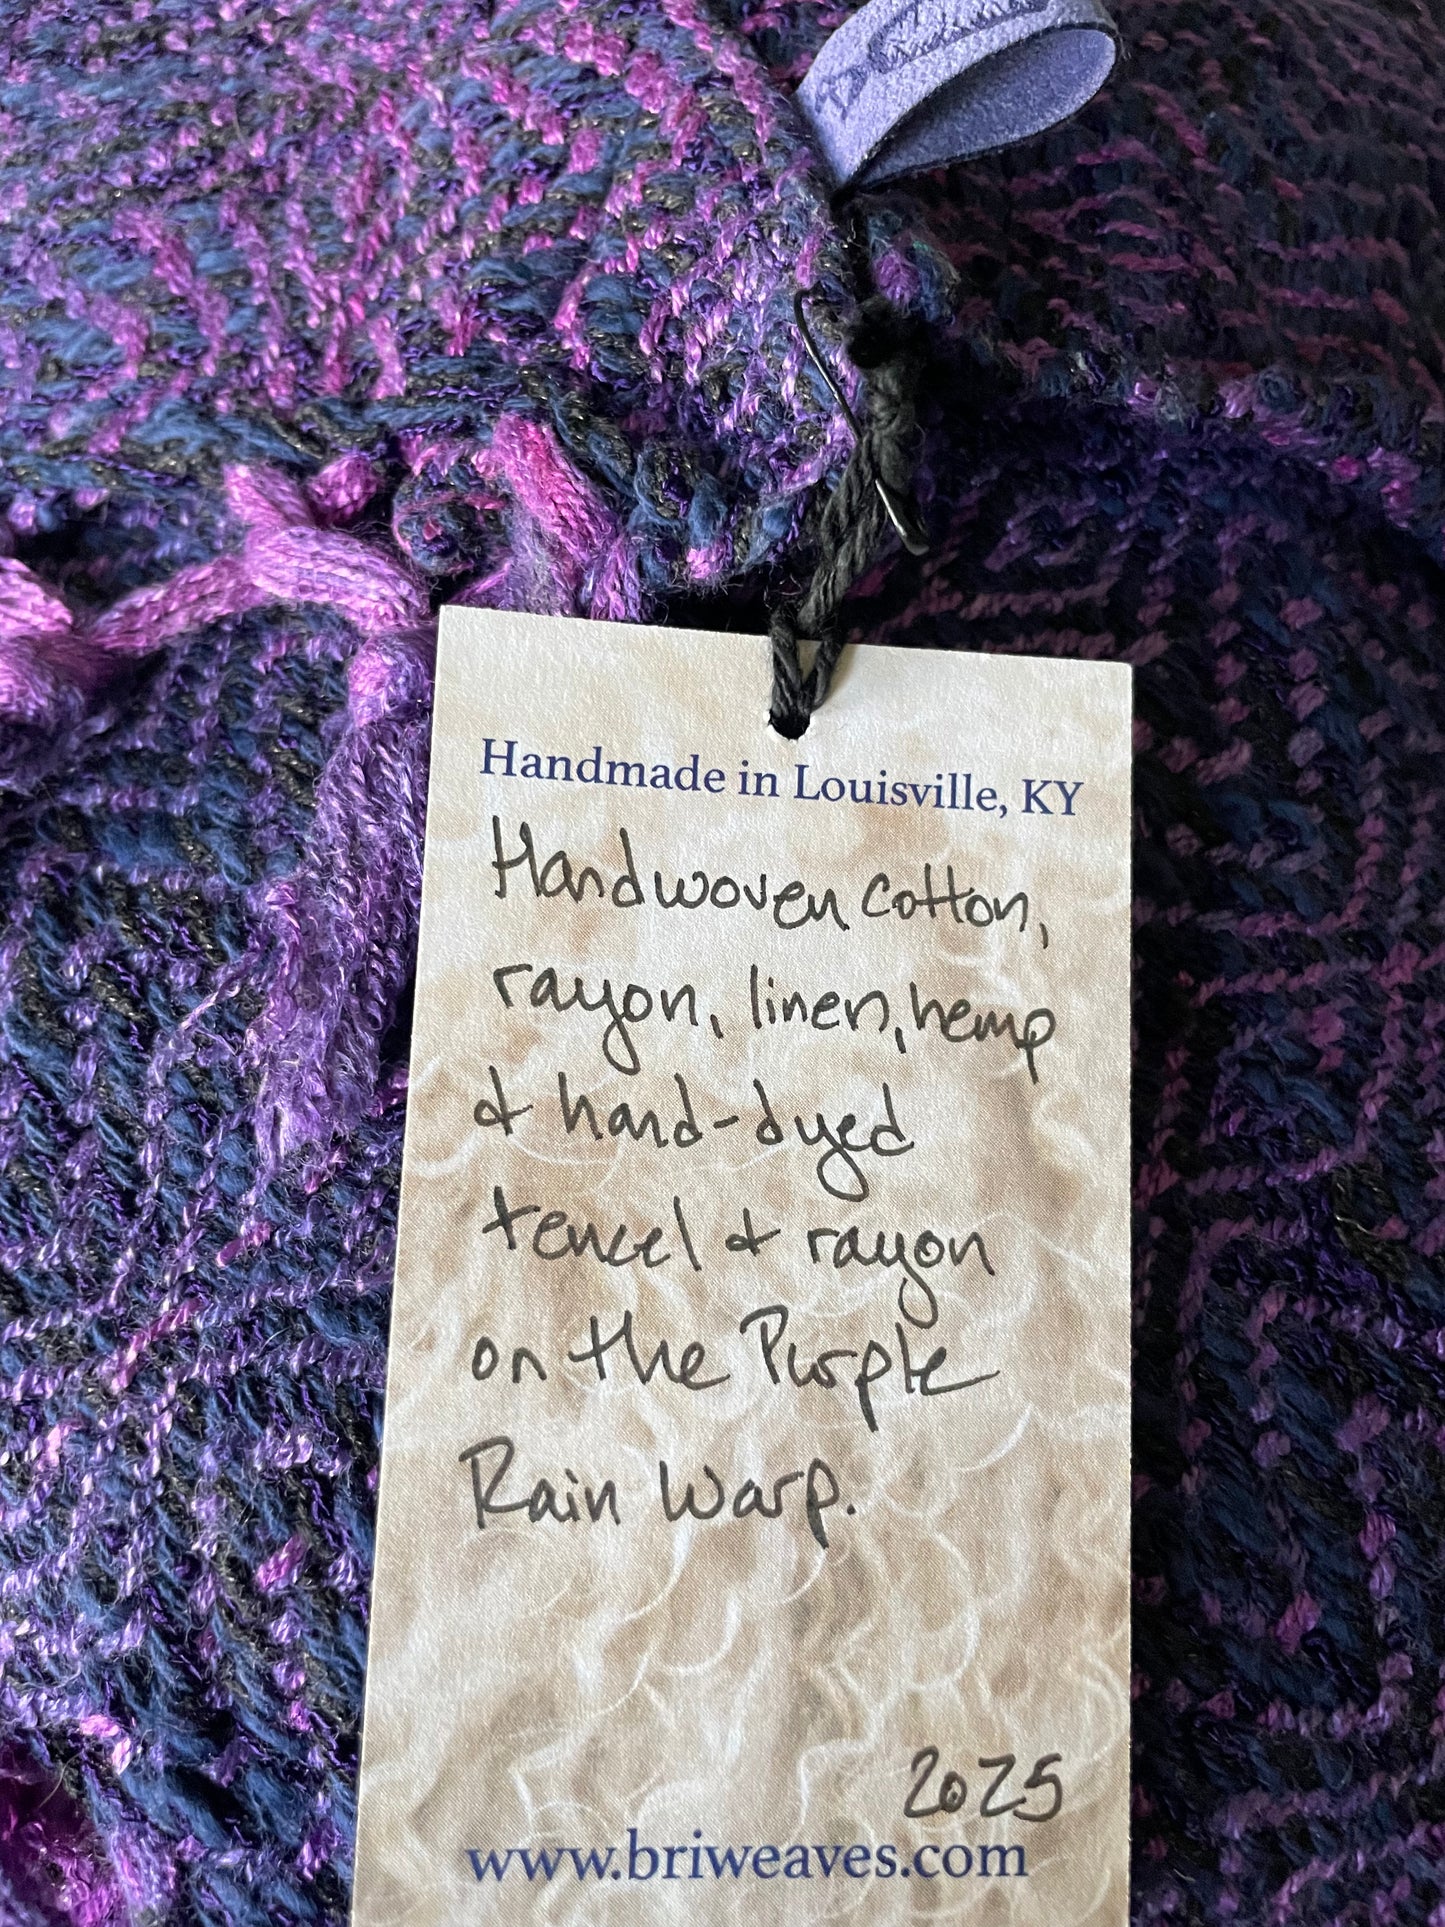 Handmade in Louisville, KY
Handwoven cotton,
rayon, linen, hemp
& hand-dyed
tencel & rayon
on the Purple
Rain Warp.
2025
www.briweaves.com